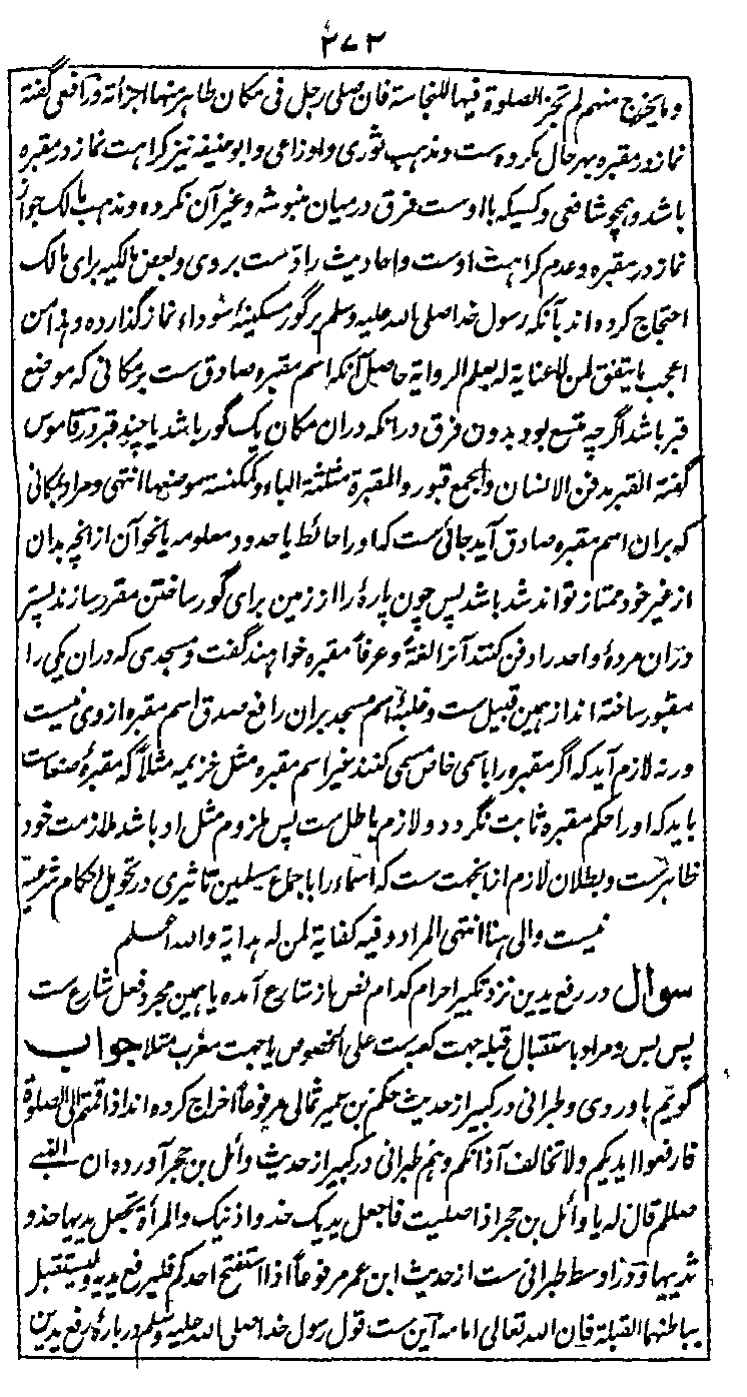 ۲۷۲
وما یخرج منهم لم تجز الصلوة فیها للنجاسة فان صلی رجل فی مکان طاهر منها اجزأته ورافعی گفته
نماز در مقبره بهر حال مکروه ست و مذهب ثوری و اوزاعی و ابوحنیفه نیز کراهت نماز در مقبره
باشد و همچو شافعی و کسیکه با اوست فرق درمیان منبوشه و غیر آن نکرده و مذهب مالک جواز
نماز در مقبره و عدم کراهت اوست و احادیث رادّست بر وی و بعض مالکیه برای مالک
احتجاج کرده اند بآنکه رسول خدا صلی الله علیه وسلم بر گور مسکینهٔ سوداء نماز گذارده وهذا من
اعجب ما یتفق لمن لا عنایة له بعلم الروایة حاصل آنکه اسم مقبره صادق ست بر مکانی که موضع
قبر باشد اگرچه متسع بود بدون فرق در آنکه دران مکان یک گور باشد یا چند قبر در قاموس
گفته القبر مدفن الانسان والجمع قبور والمقبرة مثلثة الباء وکمکنسة موضعها انتهی و مراد بمکانی
که بران اسم مقبره صادق آید جائی ست که او را حائط یا حدود معلومه یا نحو آن از انچه بدان
از غیر خود ممتاز تواند شد باشد پس چون پارهٔ را از زمین برای گور ساختن مقرر سازند پستر
دران مردهٔ واحد را دفن کنند آنرا لغةً و عرفاً مقبره خواهند گفت و مسجدی که دران یکی را
مقبور ساخته اند از همین قبیل ست و غلبهٔ اسم مسجد بران رافع صدق اسم مقبره از وی نیست
ورنه لازم آید که اگر مقبره را باسمی خاص مسمی کنند غیر اسم مقبره مثل خزیمه مثلاً که مقبرهٔ صنعاست
باید که او را حکم مقبره ثابت نگردد و لازم باطل ست پس ملزوم مثل او باشد ملازمت خود
ظاهرست و بطلان لازم ازانجهت ست که اسماء را باجماع مسلمین تاثیری در تحویل احکام شرعیه
نیست والی هنا انتهی المراد وفیه کفایة لمن له هدایة والله اعلم
سوال در رفع یدین نزد تکبیر احرام کدام نص از شارع آمده یا همین مجرد فعل شارع ست
پس بس و مراد باستقبال قبله جهت کعبه ست علی الخصوص یا جهت مغرب مثلا جواب
گویم باوردی و طبرانی در کبیر از حدیث حکم بن عمیر ثمالی مرفوعاً اخراج کرده اند اذا قمتم الی الصلوة
فارفعوا ایدیکم ولا تخالف آذانکم و هم طبرانی در کبیر از حدیث وائل بن حجر آورده ان النبی
صللم قال له یا وائل بن حجر اذا صلیت فاجعل یدیک حذو اذنیک والمرأة تجعل یدیها حذو
ثدییها و در اوسط طبرانی ست از حدیث ابن عمر مرفوعاً اذا استفتح احدکم فلیرفع یدیه ولیستقبل
بباطنهما القبلة فان الله تعالی امامه این ست قول رسول خدا صلی الله علیه وسلم دربارهٔ رفع یدین